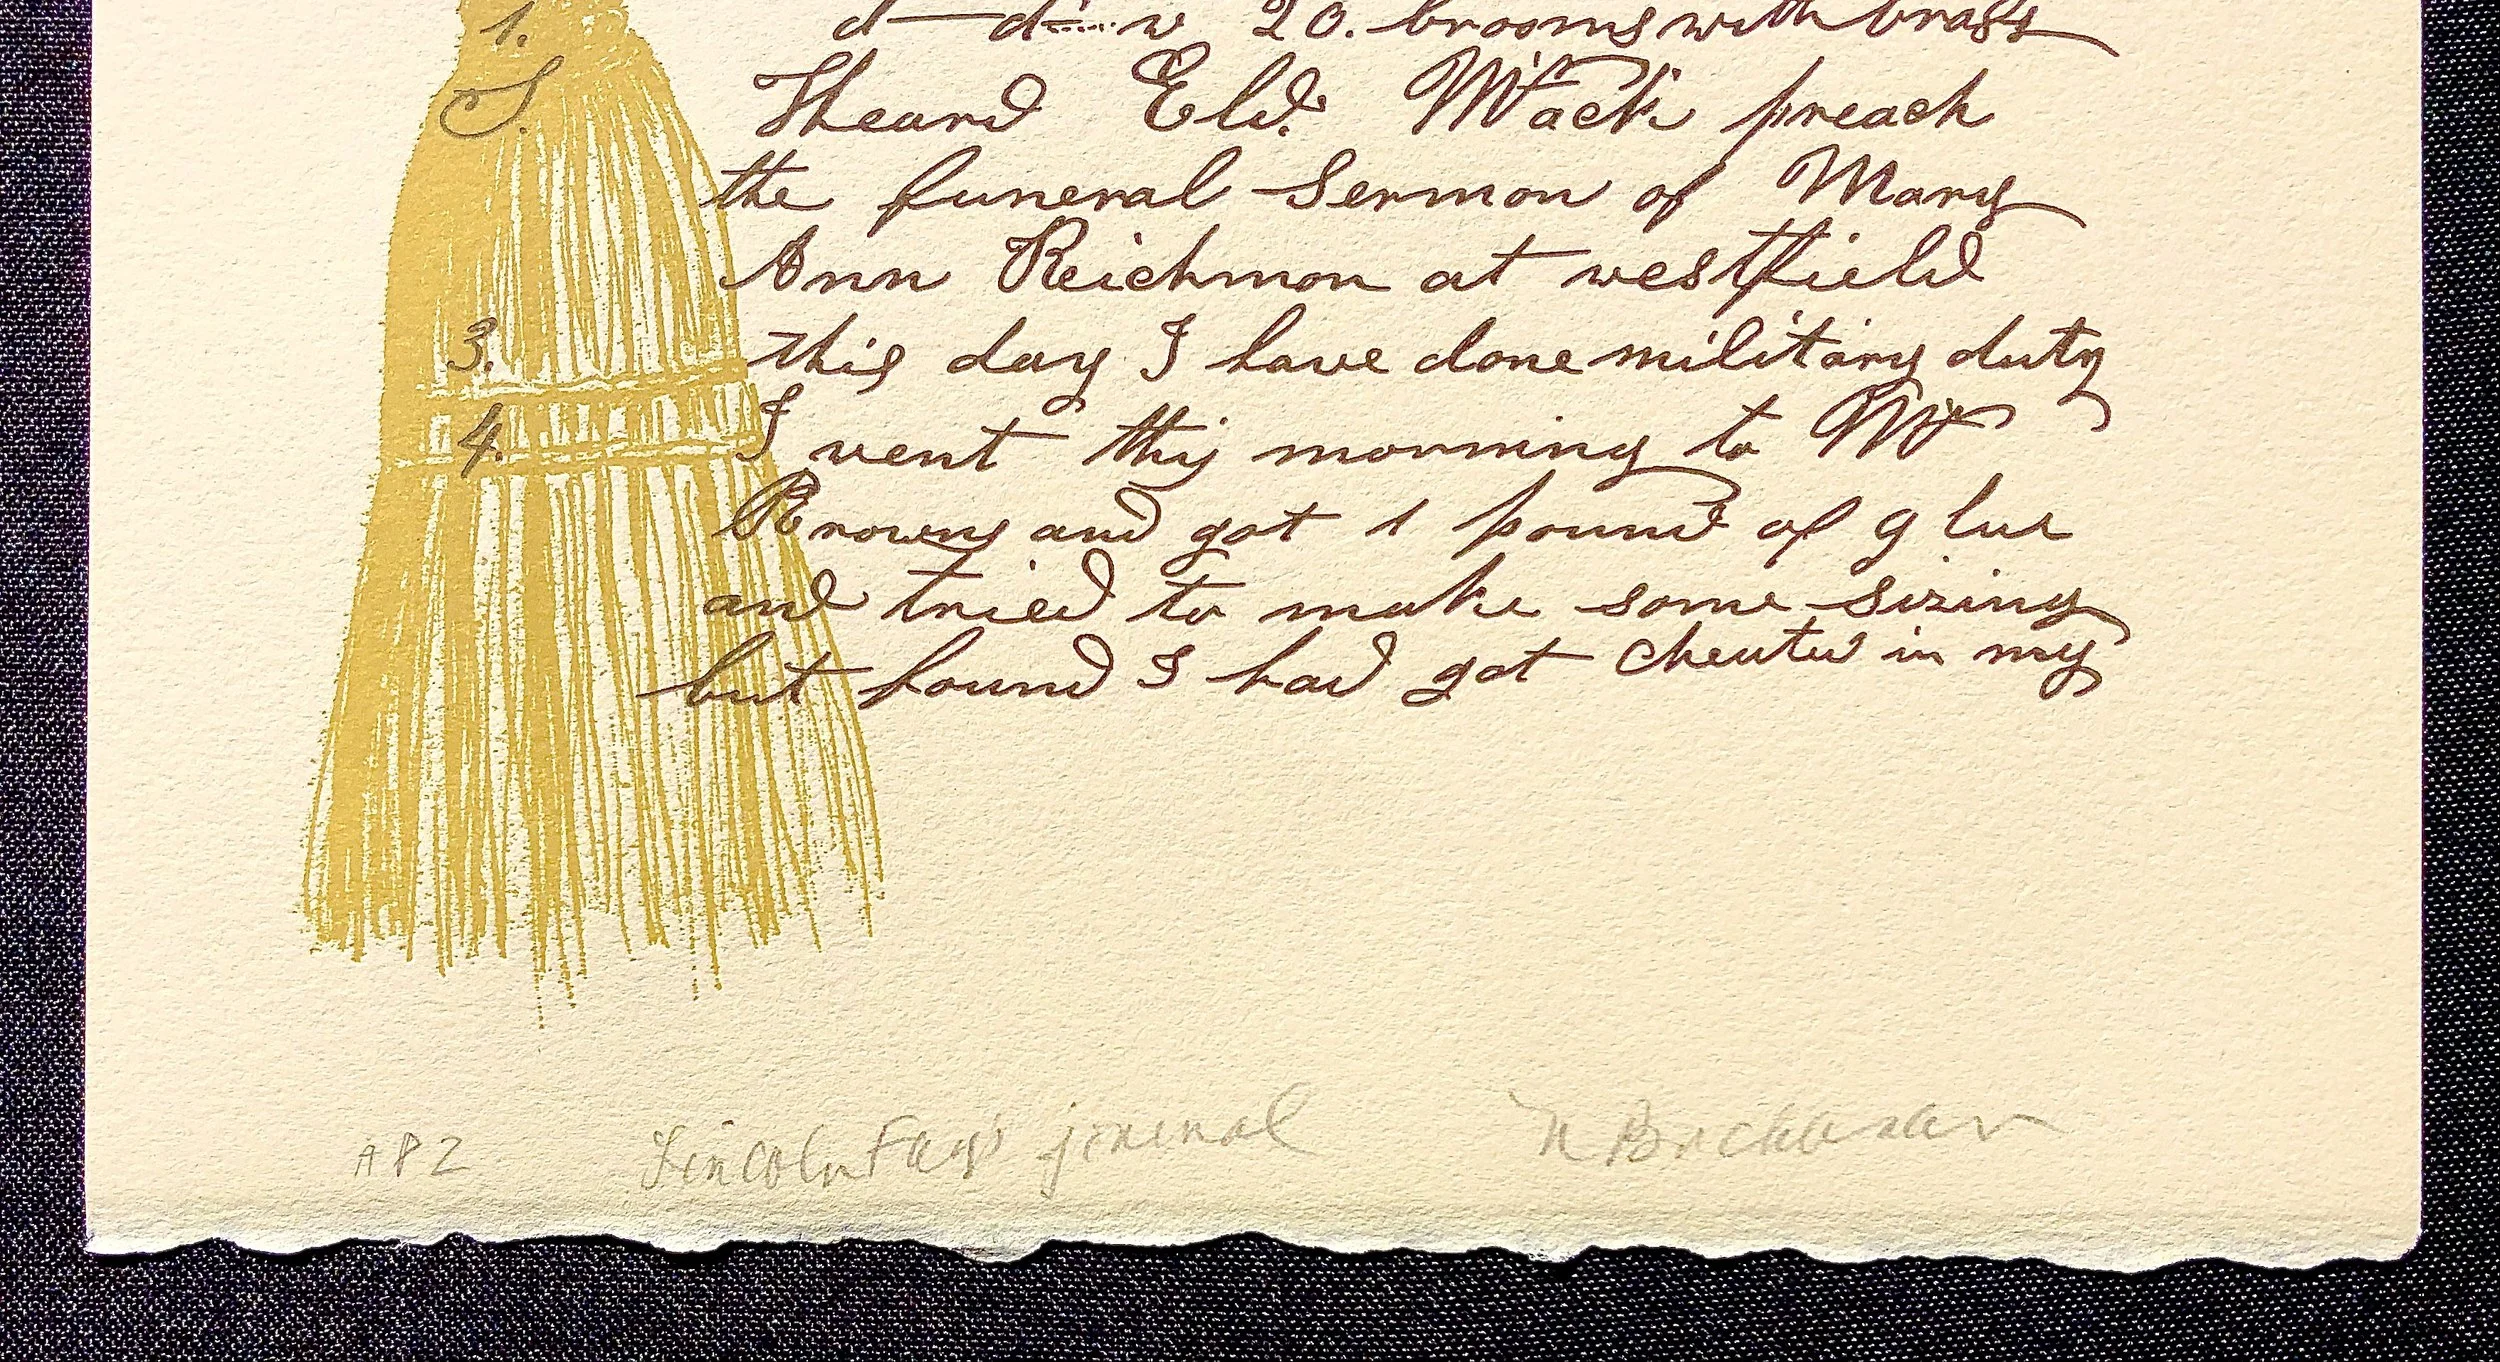 1. d—d=...w 20. brooms with brass
S. Heard Eld. Mack preach
the funeral Sermon of Mary
Ann Reichmon at westfield
3. this day I have done military duty
4. I went this morning to Mr
Browns and got 1 pound of glue
and tried to make some sizing
but found I had got cheated in my
AP2 Lincoln Fay's journal N Buchanan